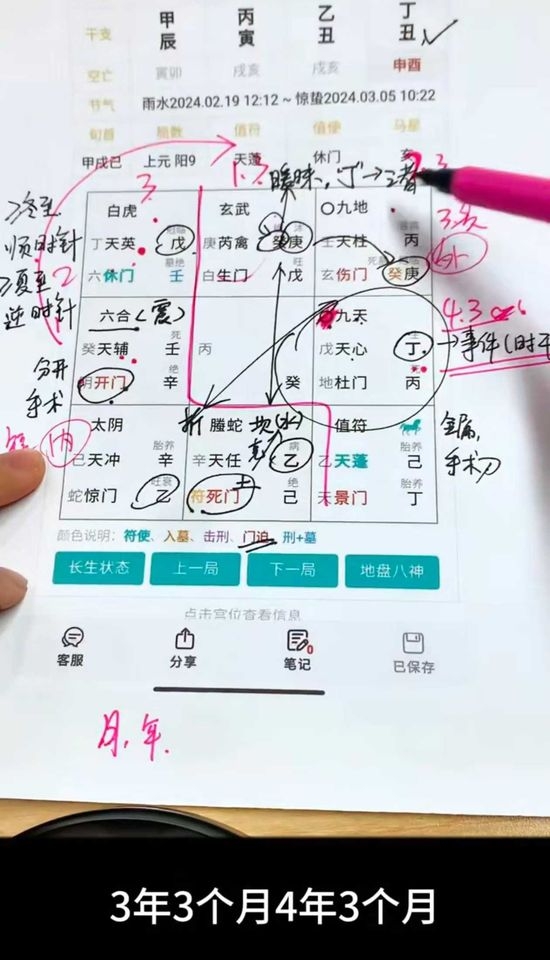 干支 甲辰 丙寅 乙丑 丁丑
空亡 寅卯 戌亥 戌亥 申酉
节气 雨水2024.02.19 12:12 ~ 惊蛰2024.03.05 10:22
旬首 局数 值符 值使 马星
甲戌己 上元 阳9 天蓬 休门 亥
3
1.3
暧昧,丁→三者
冬至
顺时针
2
夏至
逆时针
分开
手术
内
白虎
丁 天英 戊
六 休门 壬
玄武
庚 芮禽 癸 庚
白 生门 戊
九地
壬 天柱 丙
玄 伤门 癸 庚
外
六合 (震)
癸 天辅 壬
阴 开门 辛
丙
癸
九天
戊 天心 丁
地 杜门 丙
4.3
→事件(时干
太阴
己 天冲 辛
蛇 惊门 乙
折
螣蛇 坎(水)
辛 天任 乙
符 死门 土 己
值符
乙 天蓬 己
天 景门 丁
金属,
手术刀
颜色说明：符使、入墓、击刑、门迫、刑+墓
长生状态 上一局 下一局 地盘八神
点击宫位查看信息
客服 分享 笔记 已保存
月.年.
3年3个月4年3个月